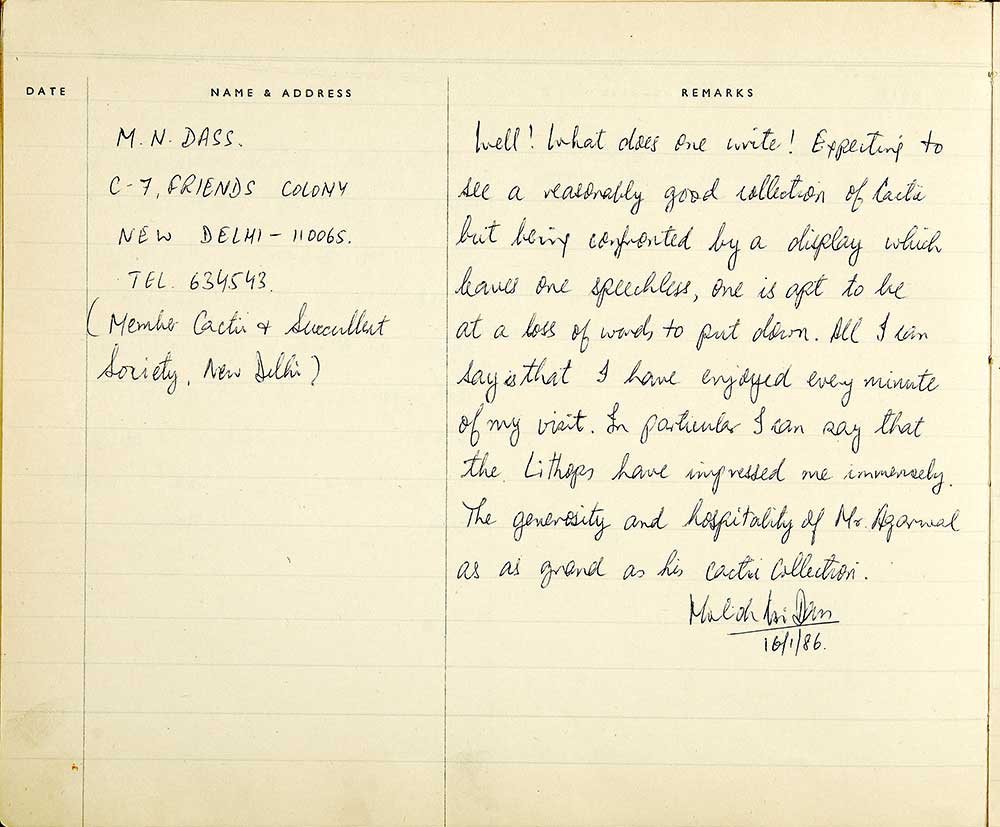 DATE
NAME & ADDRESS
REMARKS
M. N. DASS.
C-7, FRIENDS COLONY
NEW DELHI - 110065.
TEL. 634543.
(Member Cactii & Succullent
Society, New Delhi)
Well! What does one write! Expecting to
see a reasonably good collection of Cactii
but being confronted by a display which
leaves one speechless, one is apt to be
at a loss of words to put down. All I can
say is that I have enjoyed every minute
of my visit. In particular I can say that
the Lithops have impressed me immensely.
The generosity and hospitality of Mr. Agarwal
as as grand as his cactii collection.
16/1/86.